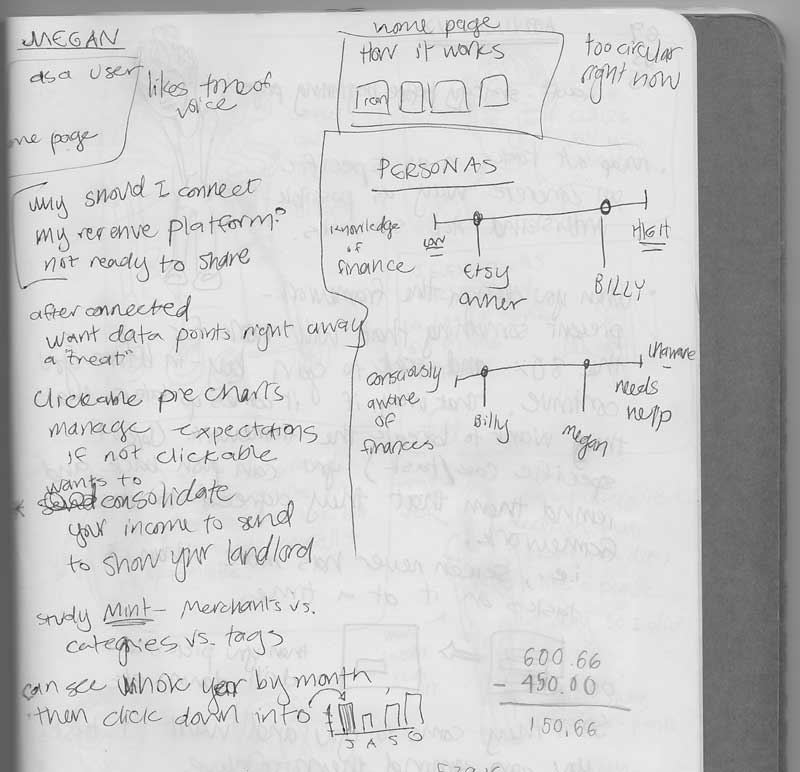 MEGAN
as a user
likes tone of
voice
me page
why should I connect
my revenue platform?
not ready to share
after connected
want data points right away
a "treat"
clickable pie charts
manage expectations
if not clickable
wants to
consolidate
your income to send
to show your landlord
study Mint - Merchants vs.
categries vs. tags
can see whole year by month,
then click down into
J A S O
home page
How it works
Icon
too circular
right now
PERSONAS
knowledge
of
finance
LOW
HIGH
Etsy
owner
BILLY
consciously
aware
of
finances
Billy
megan
unaware
needs
help
600.66
- 450.00
150.66